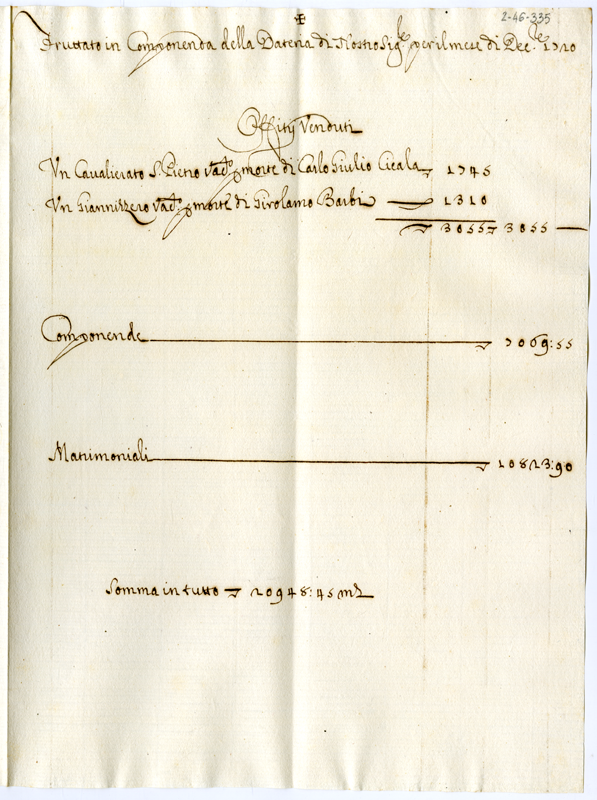 2-46-335
✠
Fruttato in Componenda della Dateria di Nostro Sig.re per il mese di Dec.bre 1710
Offitij Venduti
Un Cavalierato S. Pietro vac.to p morte di Carlo Giulio Cicala 1745
Un Giannizzero vac.to p morte di Girolamo Barbi 1310
3055 3055
Componende 7069:55
Matrimoniali 10823:90
Somma in tutto 20948:45 mta